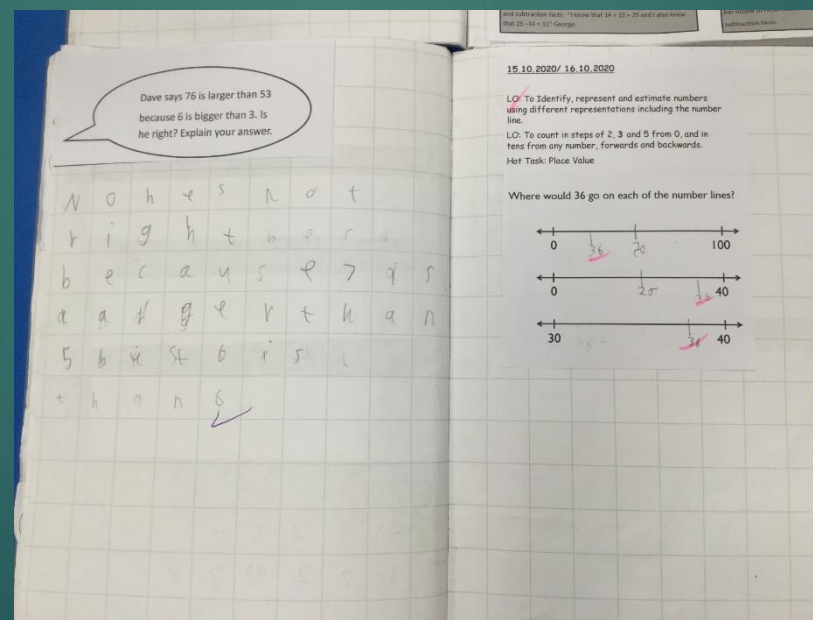 and subtraction facts. "I know that 14 + 11 = 25 and I also know
that 25 – 14 = 11" George
subtraction facts.
Dave says 76 is larger than 53
because 6 is bigger than 3. Is
he right? Explain your answer.
N o h e s n o t
r i g h t b e c
b e c a u s e 7 i s
l a r g e r t h a n
5 6 i s
t h a n 6
15.10.2020/ 16.10.2020
LO: To Identify, represent and estimate numbers
using different representations including the number
line.
LO: To count in steps of 2, 3 and 5 from 0, and in
tens from any number, forwards and backwards.
Hot Task: Place Value
Where would 36 go on each of the number lines?
0 36 50 100
0 20 36 40
30 36 40